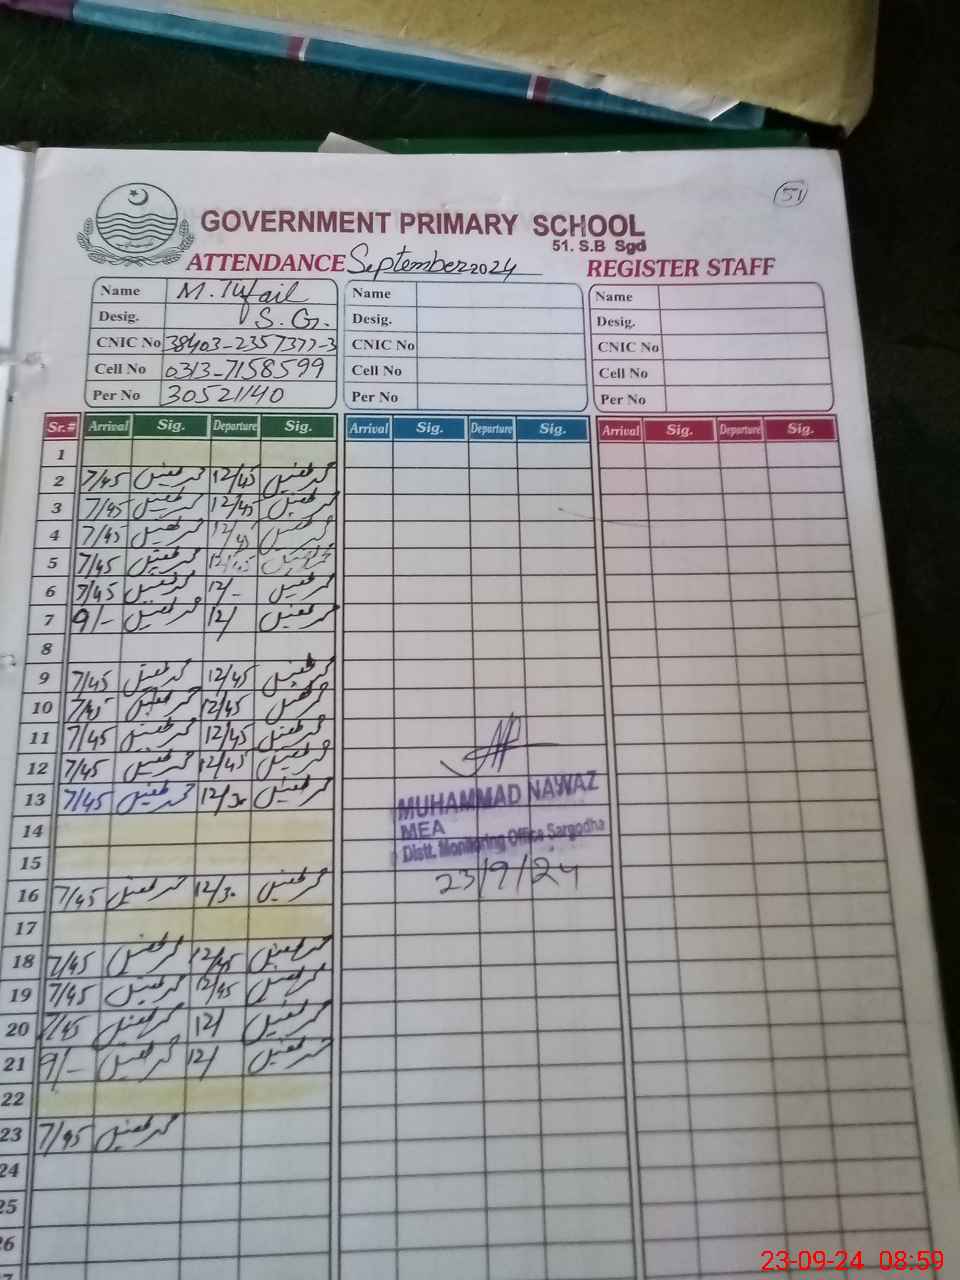 51
GOVERNMENT PRIMARY SCHOOL
51. S.B Sgd
ATTENDANCE September 2024 REGISTER STAFF
Name M. Tufail Name Name
Desig. S. G. Desig. Desig.
CNIC No 38403-2357377-3 CNIC No CNIC No
Cell No 0313-7158599 Cell No Cell No
Per No 30521140 Per No Per No
Sr.# Arrival Sig. Departure Sig. Arrival Sig. Departure Sig. Arrival Sig. Departure Sig.
1
2 7/45 محمد طفیل 12/45 محمد طفیل
3 7/45 محمد طفیل 12/45 محمد طفیل
4 7/45 محمد طفیل 12/45 محمد طفیل
5 7/45 محمد طفیل 12/45 محمد طفیل
6 7/45 محمد طفیل 12/- محمد طفیل
7 9/- محمد طفیل 12/ محمد طفیل
8
9 7/45 محمد طفیل 12/45 محمد طفیل
10 7/45 محمد طفیل 12/45 محمد طفیل
11 7/45 محمد طفیل 12/45 محمد طفیل
12 7/45 محمد طفیل 12/45 محمد طفیل
13 7/45 محمد طفیل 12/30 محمد طفیل
MUHAMMAD NAWAZ
14
MEA
Distt. Monitoring Office Sargodha
15
16 7/45 محمد طفیل 12/30 محمد طفیل
23/9/24
17
18 7/45 محمد طفیل 12/45 محمد طفیل
19 7/45 محمد طفیل 12/45 محمد طفیل
20 7/45 محمد طفیل 12/ محمد طفیل
21 9/- محمد طفیل 12/ محمد طفیل
22
23 7/45 محمد طفیل
24
25
26
23-09-24 08:59